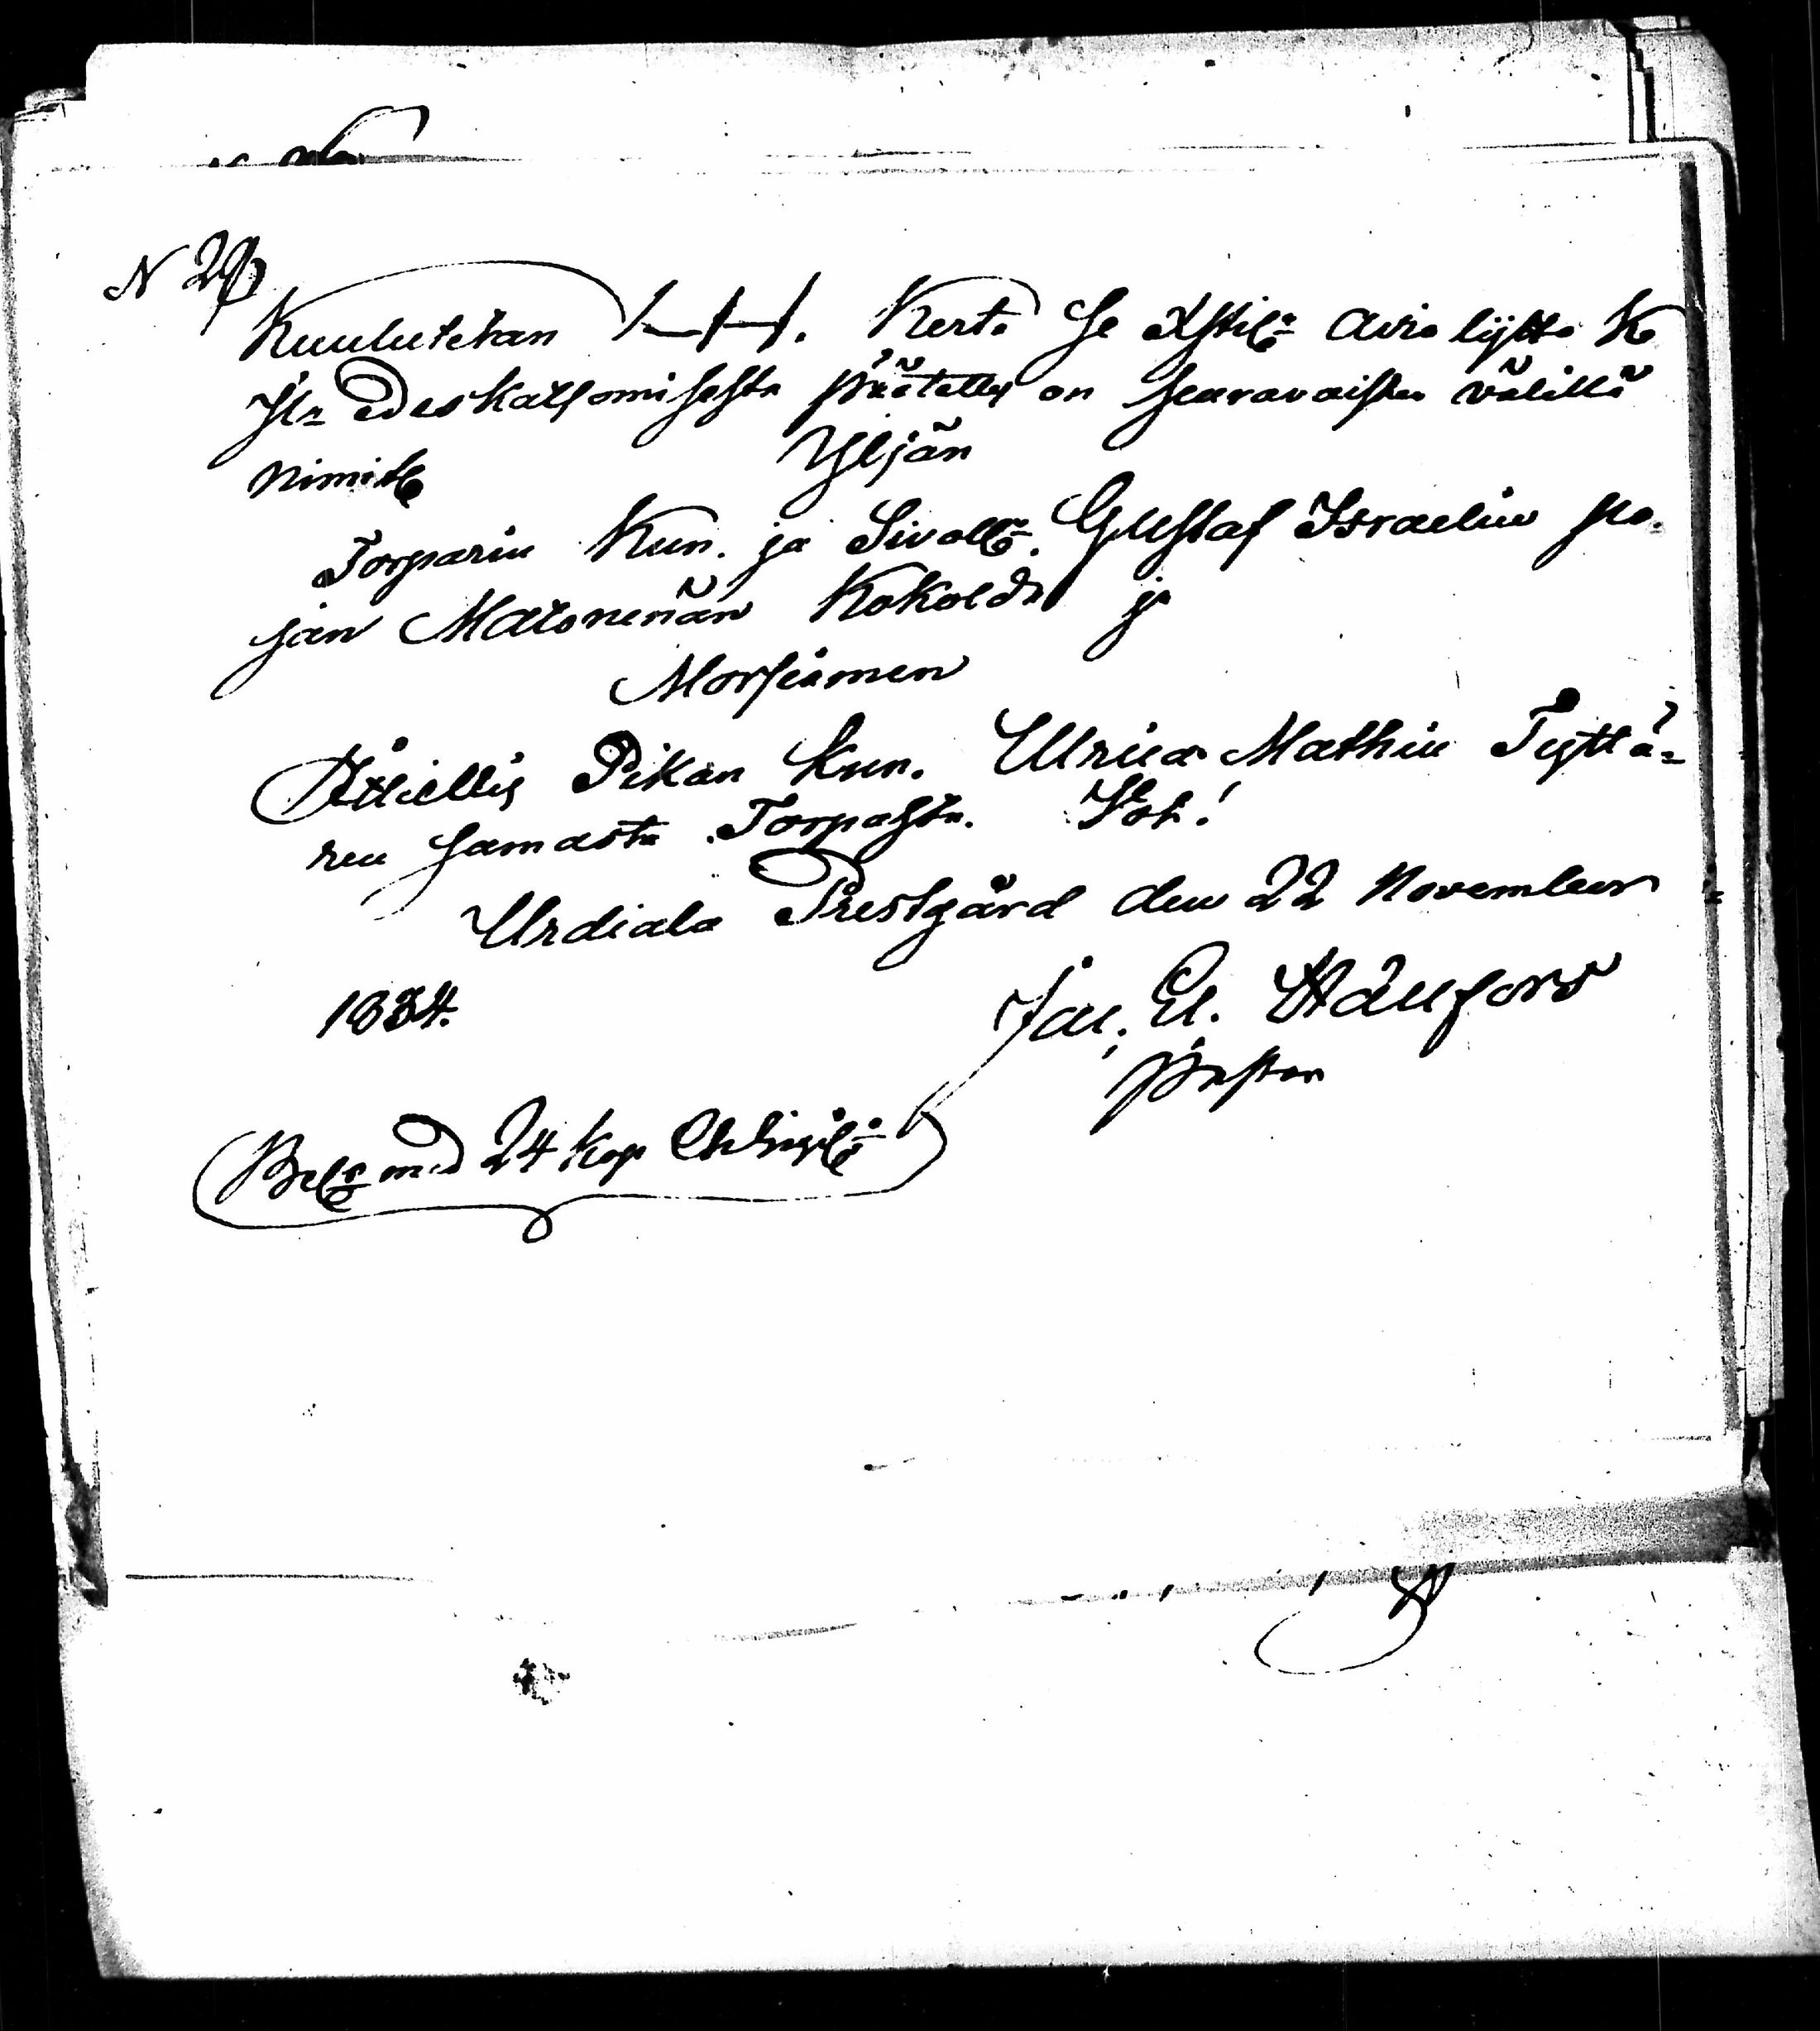 N 29
Kuulutetan 1 - 1 - 1. Kerta se Xstil: Avio lijtto K
J:n edeskatsomisesta päätetty on seuravaisten välillä
nimitt:
Yljän
Torparin Kun. ja Sivoll: Gustaf Israelin po-
jan Matonenän Kokolda ja
Morsiamen
Äitiellis Pikan kun. Ulrica Mathin Tyttä=
ren samasta Torpasta. Hot!
Urdiala Prestgård den 22 November
1834.
Jac. El. Hällfors
Pastor
med 24 kop